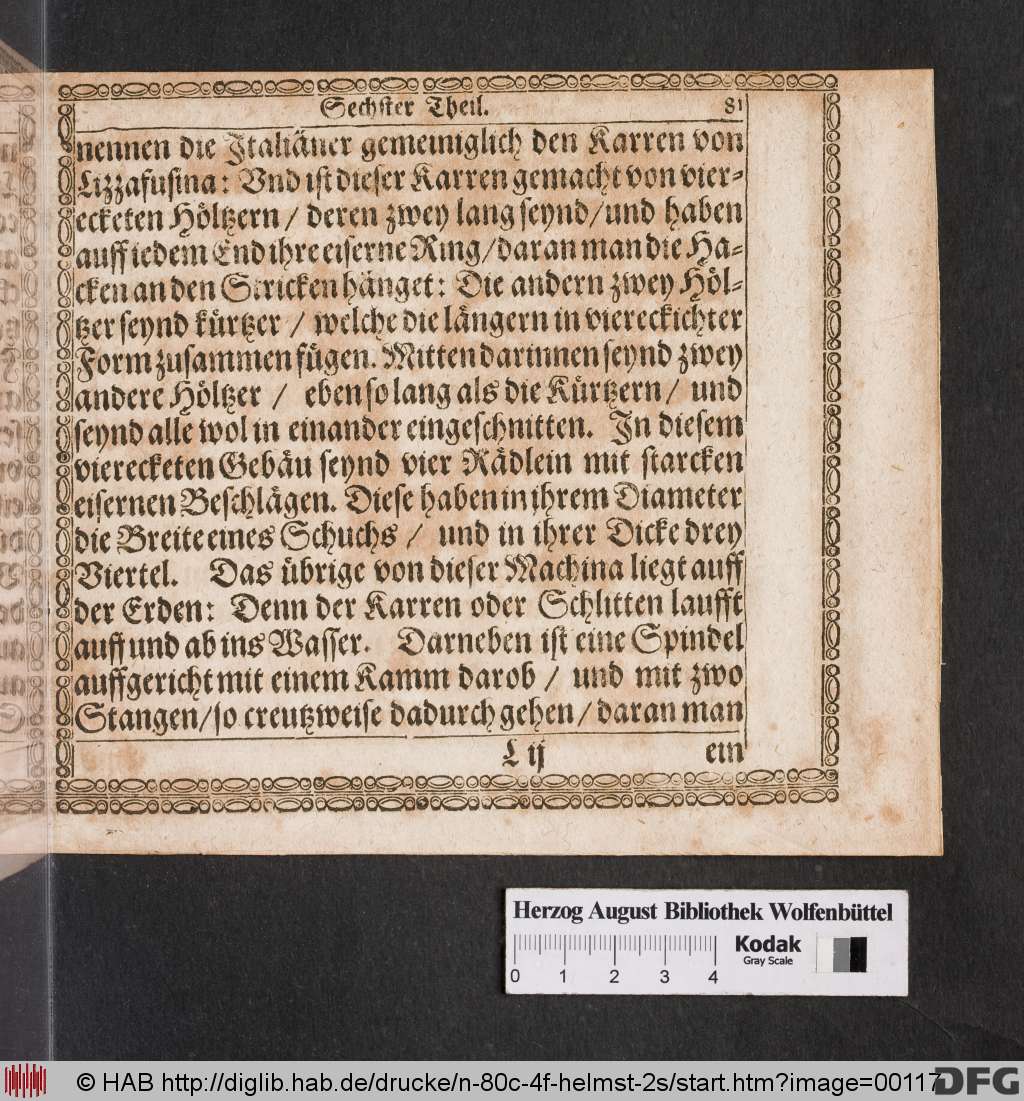 Sechster Theil. 81
nennen die Italiäner gemeiniglich den Karren von
Lizzafusina: Vnd ist dieser Karren gemacht von vier-
ecketen Höltzern / deren zwey lang seynd / und haben
auff iedem End ihre eiserne Ring / daran man die Ha-
cken an den Stricken hänget: Die andern zwey Höl-
tzer seynd kürtzer / welche die längern in viereckichter
Form zusammen fügen. Mitten darinnen seynd zwey
andere Höltzer / eben so lang als die Kürtzern / und
seynd alle wol in einander eingeschnitten. In diesem
vierecketen Gebäu seynd vier Rädlein mit starcken
eisernen Beschlägen. Diese haben in ihrem Diameter
die Breite eines Schuchs / und in ihrer Dicke drey
Viertel. Das übrige von dieser Machina liegt auff
der Erden: Denn der Karren oder Schlitten laufft
auff und ab ins Wasser. Darneben ist eine Spindel
auffgericht mit einem Kamm darob / und mit zwo
Stangen / so creutzweise dadurch gehen / daran man
L ij ein
Herzog August Bibliothek Wolfenbüttel
Kodak
Gray Scale
0 1 2 3 4
© HAB http://diglib.hab.de/drucke/n-80c-4f-helmst-2s/start.htm?image=00117
DFG